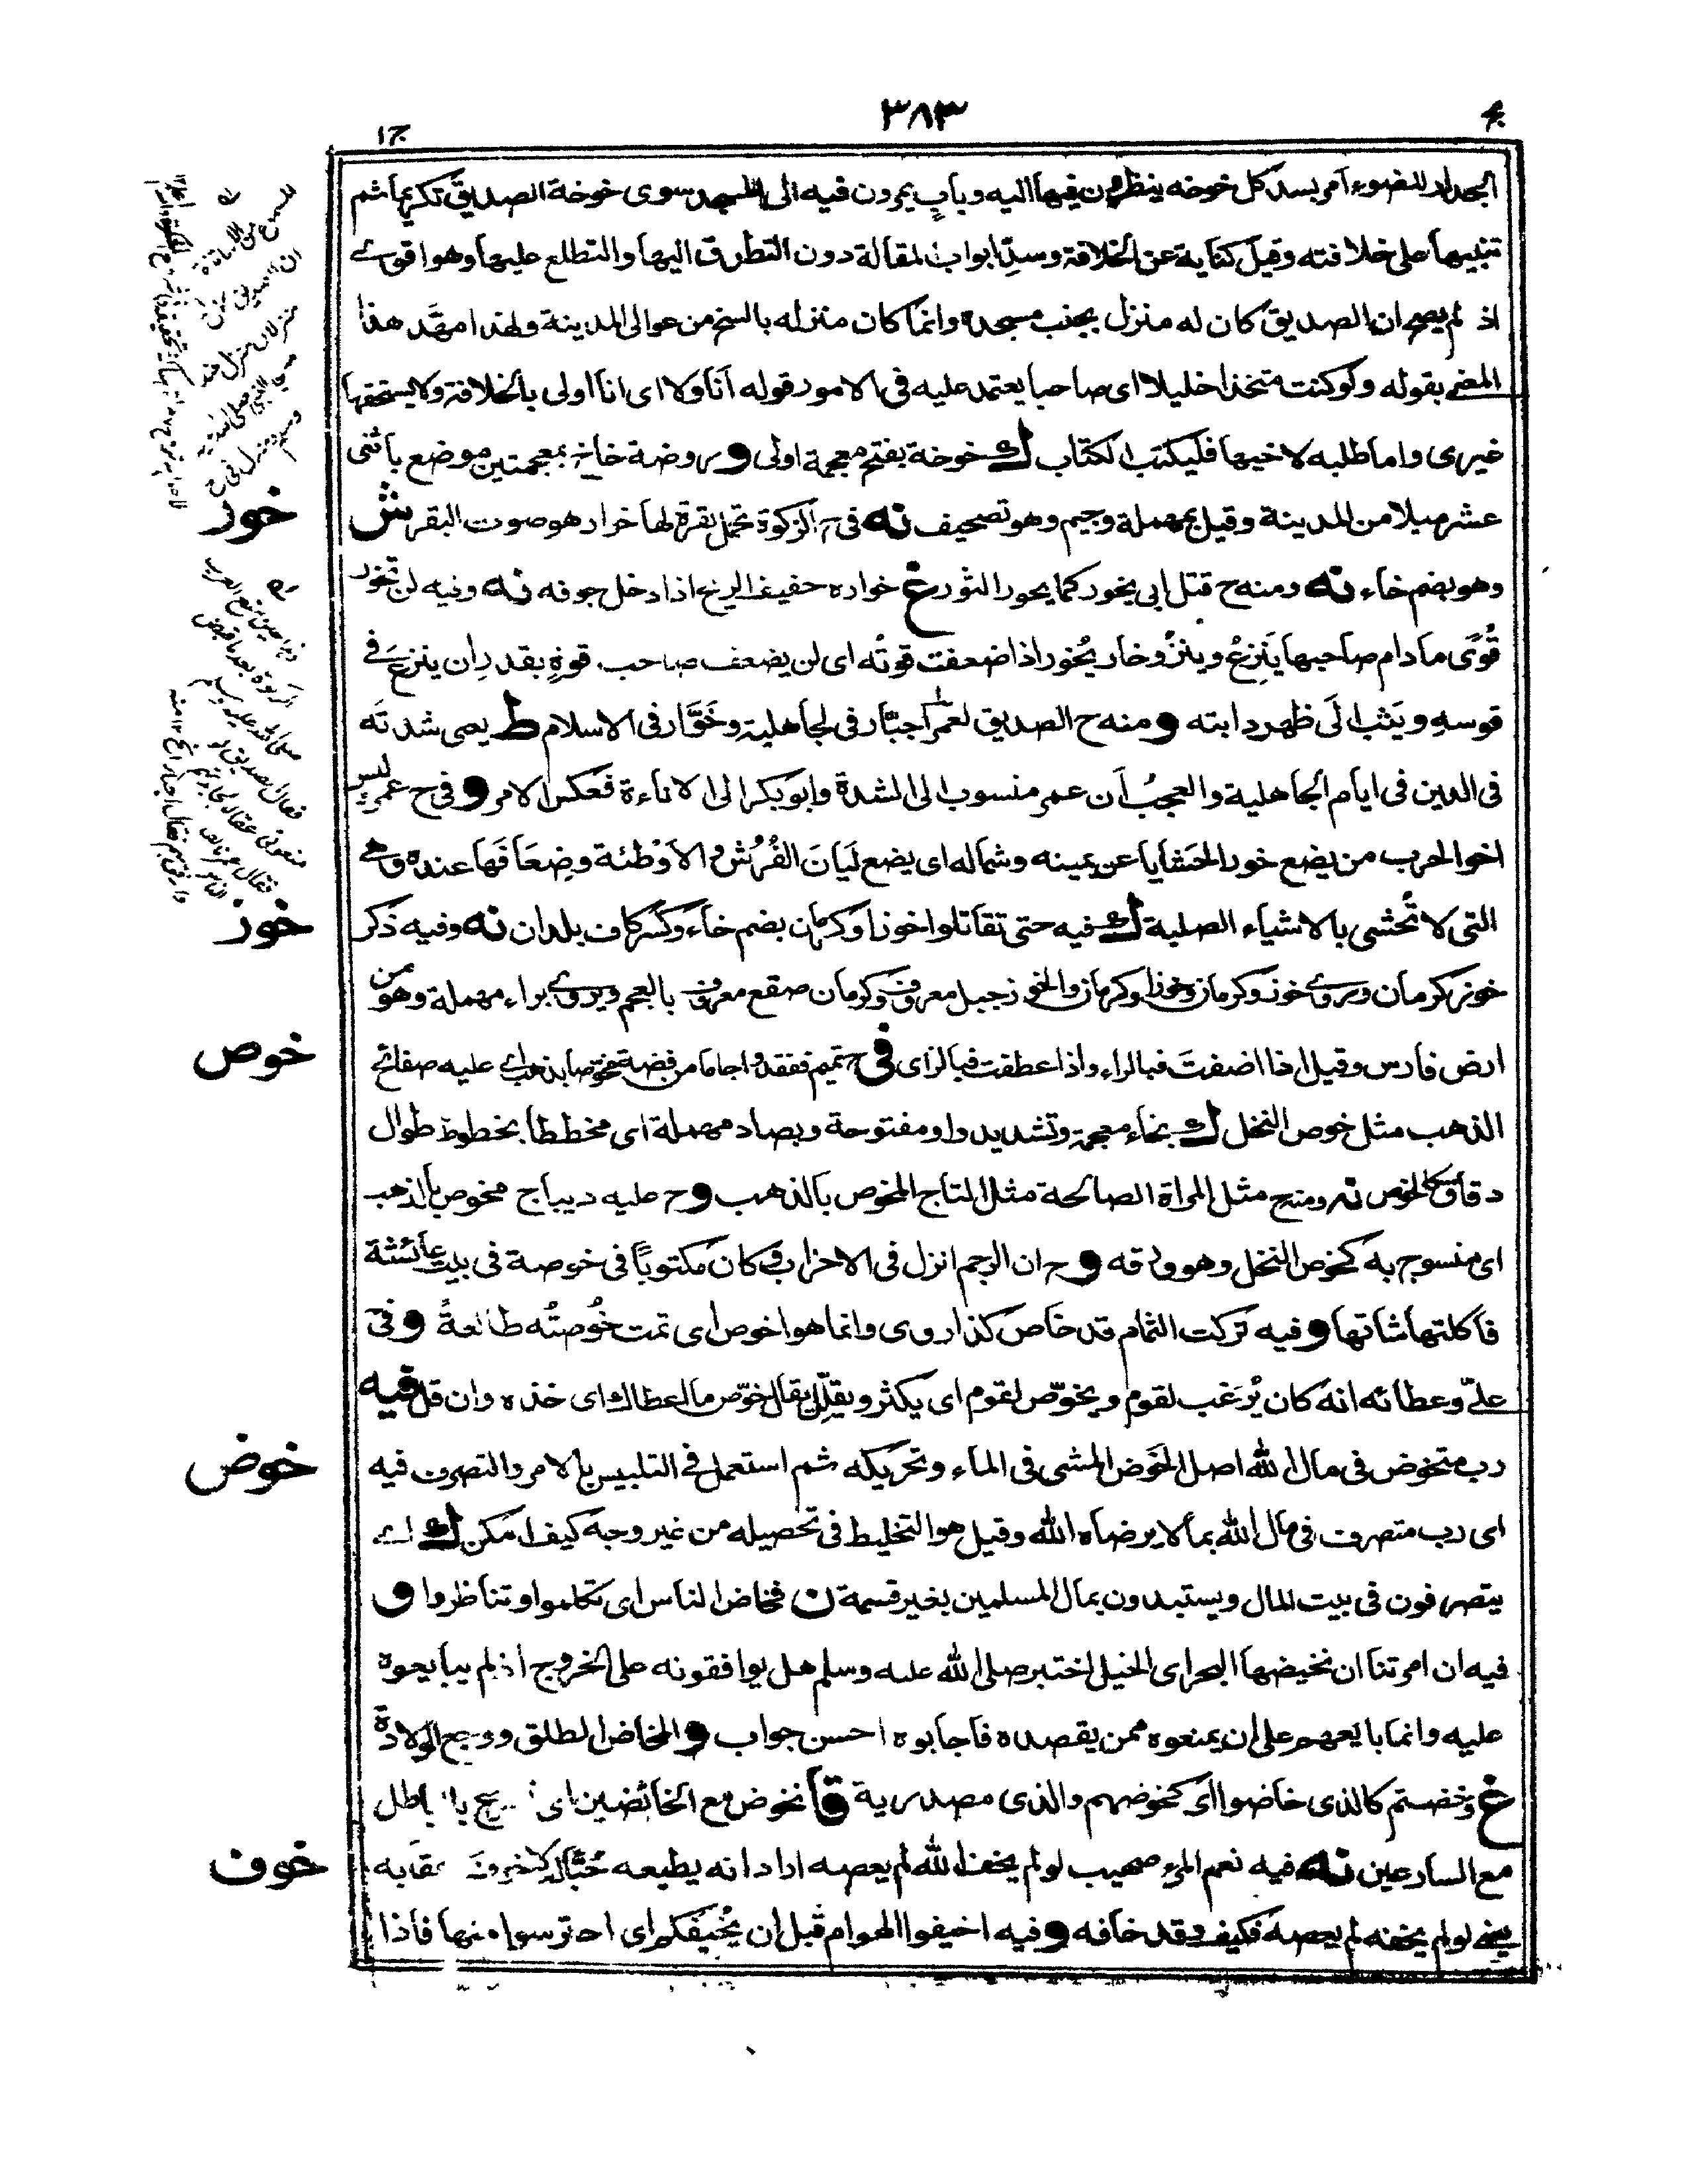 ٣٨٣
ج١
الجدار للضوء أمر بسد كل خوخه ينظرون فيها اليه وباب يمرون فيه الى المسجد سوى خوخة الصديق تكريما ثم
تنبيها على خلافته وقيل كناية عن الخلافة وسدّ ابواب المقالة دون التطرق اليها والتطلع عليها وهو اقوى
اذ لم يصح ان الصديق كان له منزل بجنب مسجده وانما كان منزله بالسنح من عوالى المدينة ولهذا مهّد هذا
المعنى بقوله ولو كنت متخذا خليلا اى صاحبا يعتمد عليه فى الامور قوله انا ولا اى انا اولى بالخلافة ولا يستحقها
غيرى واما طلبه لاخيها فليكتب الكتاب ك خوخة بفتح معجمة اولى و روضة خاخ بمعجمتين موضع باثنى
عشر ميلا من المدينة وقيل بمهملة وجيم وهو تصحيف نه فى ح الزكوة تحمل بقرة لها خوار هو صوت البقر ش
خور
وهو بضم خاء نه ومنه ح قتل ابى يخور كما يخور الثور غ خواره حفيف الريح اذا دخل جوفه نه وفيه لن تخور
قُوًى مادام صاحبها يَنزِعُ وينزُو خار يخور اذا ضعفت قوته اى لن يضعف صاحب قوة بقدر ان ينزع فى
قوسه ويَثب الى ظهر دابته و منه ح الصديق لعمر أجبّار فى الجاهلية وخَوّار فى الاسلام ط يصى شدته
فى الدين فى ايام الجاهلية والعجب ان عمر منسوب الى الشدة وابو بكر الى الاناءة فعكس الامر و فى ح عمر ليس
اخو الحرب من يضع خور الحشايا عن يمينه وشماله اى يضع لَيَانَ الفُرُش والاوْطئة وضِعَافَها عنده وهى
التى لا تُحشى بالاشياء الصلبة ك فيه حتى تقاتلوا خوزا وكرمان بضم خاء وكسر كاف بلدان نه وفيه ذكر
خوز
خوز كرمان وروى خوز وكرمان وخوزا وكرمان والخوز جبل معروف وكرمان صقع معروف بالعجم ويروى براء مهملة وهو من
ارض فارس وقيل اذا اضفت فبالراء واذا عطفت فبالزاى فى ح تميم ففقدوا جاما من فضة مخوّصا بذهب اى عليه صفائح
خوص
الذهب مثل خوص النخل ك بخاء معجمة وتشديد واو مفتوحة وبصاد مهملة اى مخططا بخطوط طوال
دقاق كالخوص نه ومنه ح مثل المراة الصالحة مثل التاج المخوص بالذهب و ح عليه ديباج مخوص بالذهب
اى منسوج به كخوص النخل وهو ورقه و ح ان الرجم انزل فى الاحزاب وكان مكتوبًا فى خوصة فى بيت عائشة
فاكلتها شاتها و فيه تركت الثمام قد خاص كذا روى وانما هو اخوص اى تمت خُوصتُه طالعةً و فى ح
علىّ وعطائه انه كان يُرغب لقوم ويخوّص لقوم اى يكثر ويقلّل يقال خوّص ما اعطاك اى خذه وان قل فيه
رب متخوض فى مال الله اصل الخَوض المشى فى الماء وتحريكه ثم استعمل فى التلبيس بالامر والتصرف فيه
خوض
اى رب متصرف فى مال الله بما لا يرضاه الله وقيل هو التخليط فى تحصيله من غير وجه كيف امكن ك اى
يتصرفون فى بيت المال ويستبدون بمال المسلمين بغير قسمة ن فخاض الناس اى تكلموا وتناظروا و
فيه ان امرتنا ان نخيضها البحر اى الخيل اختبر صلى الله عليه وسلم هل يوافقونه على الخروج اذ لم يبايعوه
عليه وانما بايعهم على ان يمنعوه ممن يقصده فاجابوه احسن جواب و المخاض الطلق ووجع الولادة
غ وخضتم كالذى خاضوا اى كخوضهم والذى مصدرية قا نخوض مع الخائضين اى
مع السارعين نه فيه نعم المرء صهيب لو لم يخف الله لم يعصه اراد انه يطيعه حُبًّا له لا خوف عقابه
خوف
يعنى لو لم يخفه لم يعصه فكيف وقد خافه و فيه اخيفوا الهوام قبل ان يُخيفكم اى احترسوا منها فاذا